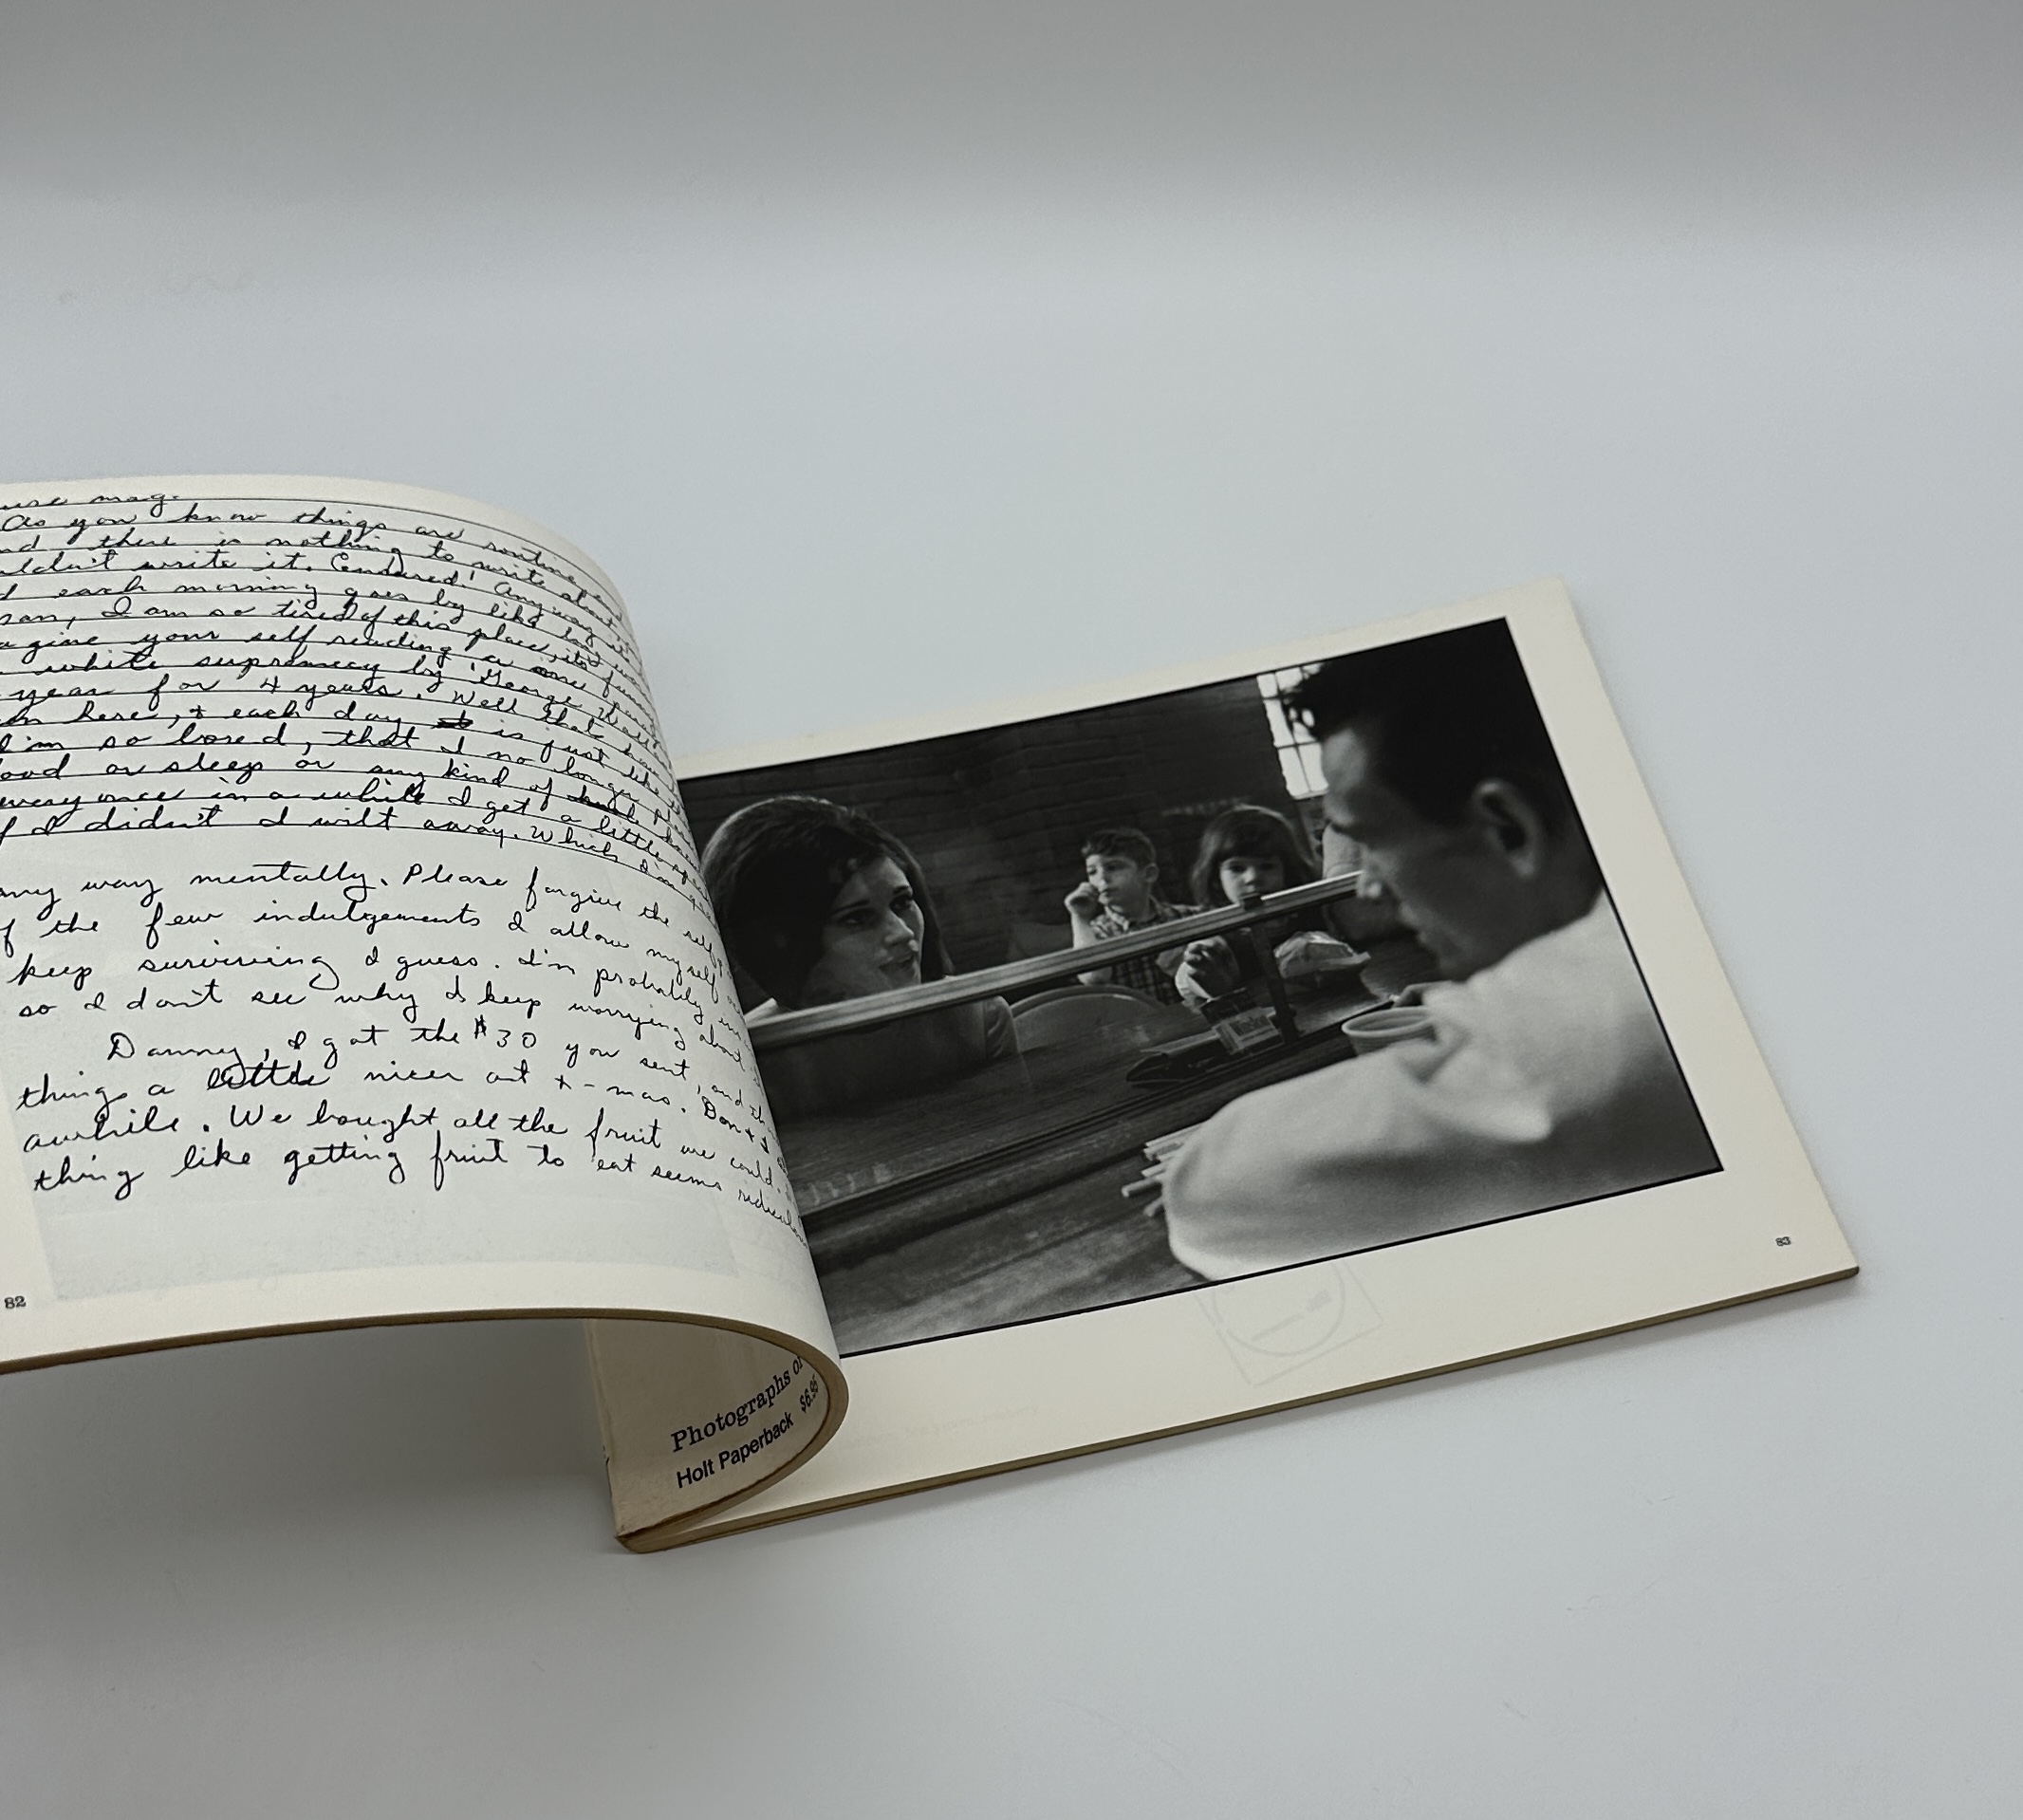 use mag.
As you know things are routine
nd there is nothing to write about
uldn't write it. Censured! Anyway
d each morning goes by like
son, I am so tired of this place, its
agine your self reading a one
white supremacy by 'George
year for 4 years. Well that's
in here, + each day is just like
I'm so bored, that I no longer
ood or sleep or any kind of
every once in a while I get a little
f I didn't I wilt away. Which
any way mentally. Please forgive the self
f the few indulgements I allow myself
keep surviving I guess. I'm probably
so I don't see why I keep worrying about
Danny, I got the $30 you sent, and
things a little nicer at x-mas. Don + I
awhile. We bought all the fruit we could.
thing like getting fruit to eat seems
82
Winston
83
Photographs of
Holt Paperback $6.95